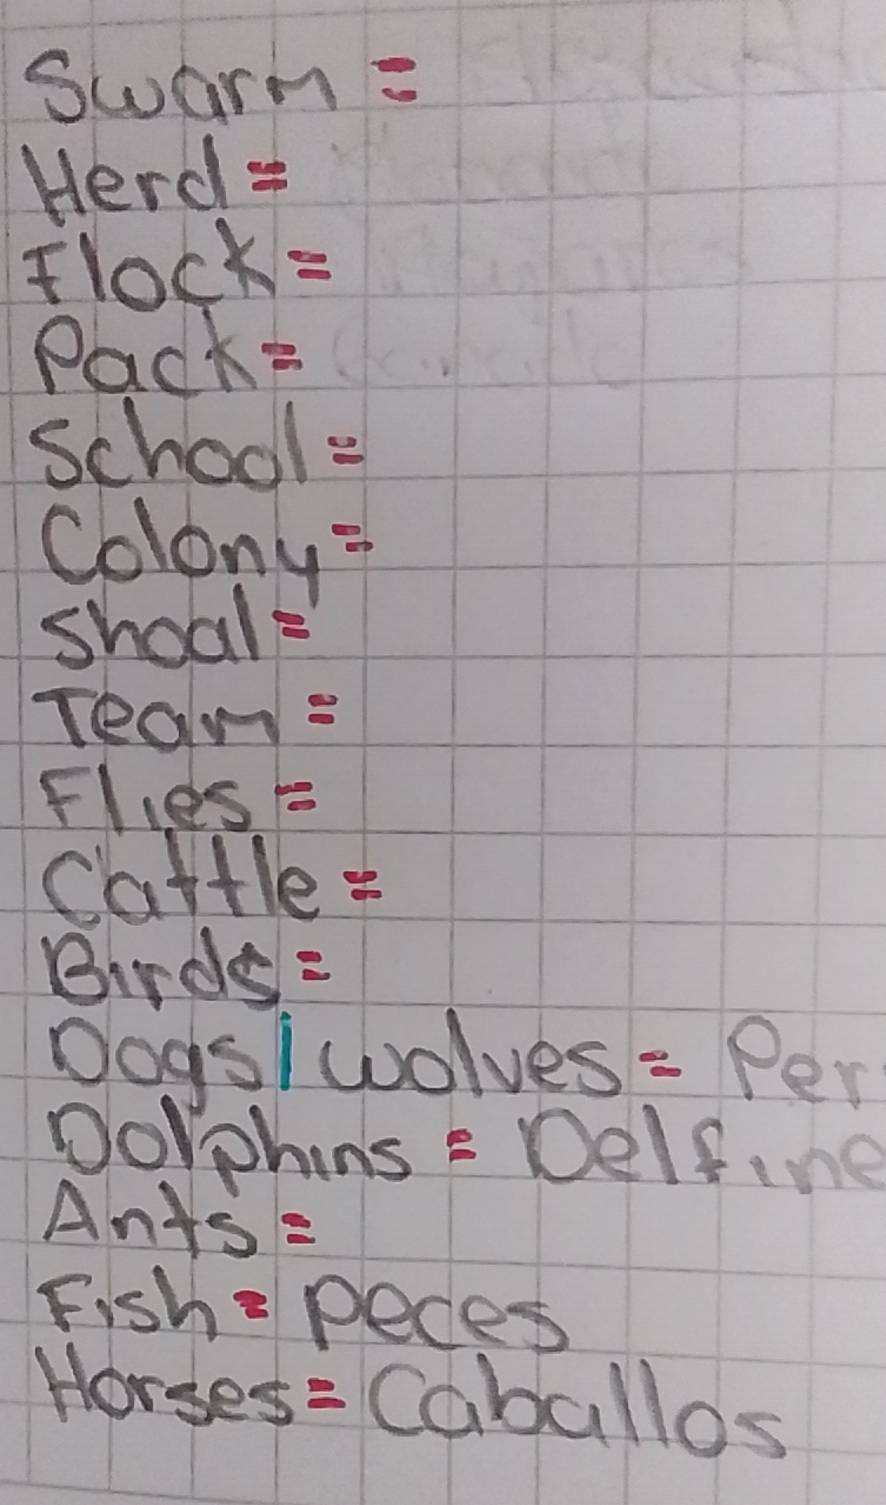 Swarm =
Herd =
Flock =
Pack =
School =
Colony =
Shoal =
Team =
Flies =
Cattle =
Birds =
Dogs/wolves = Per
Dolphins = Delfine
Ants =
Fish = peces
Horses = Caballos